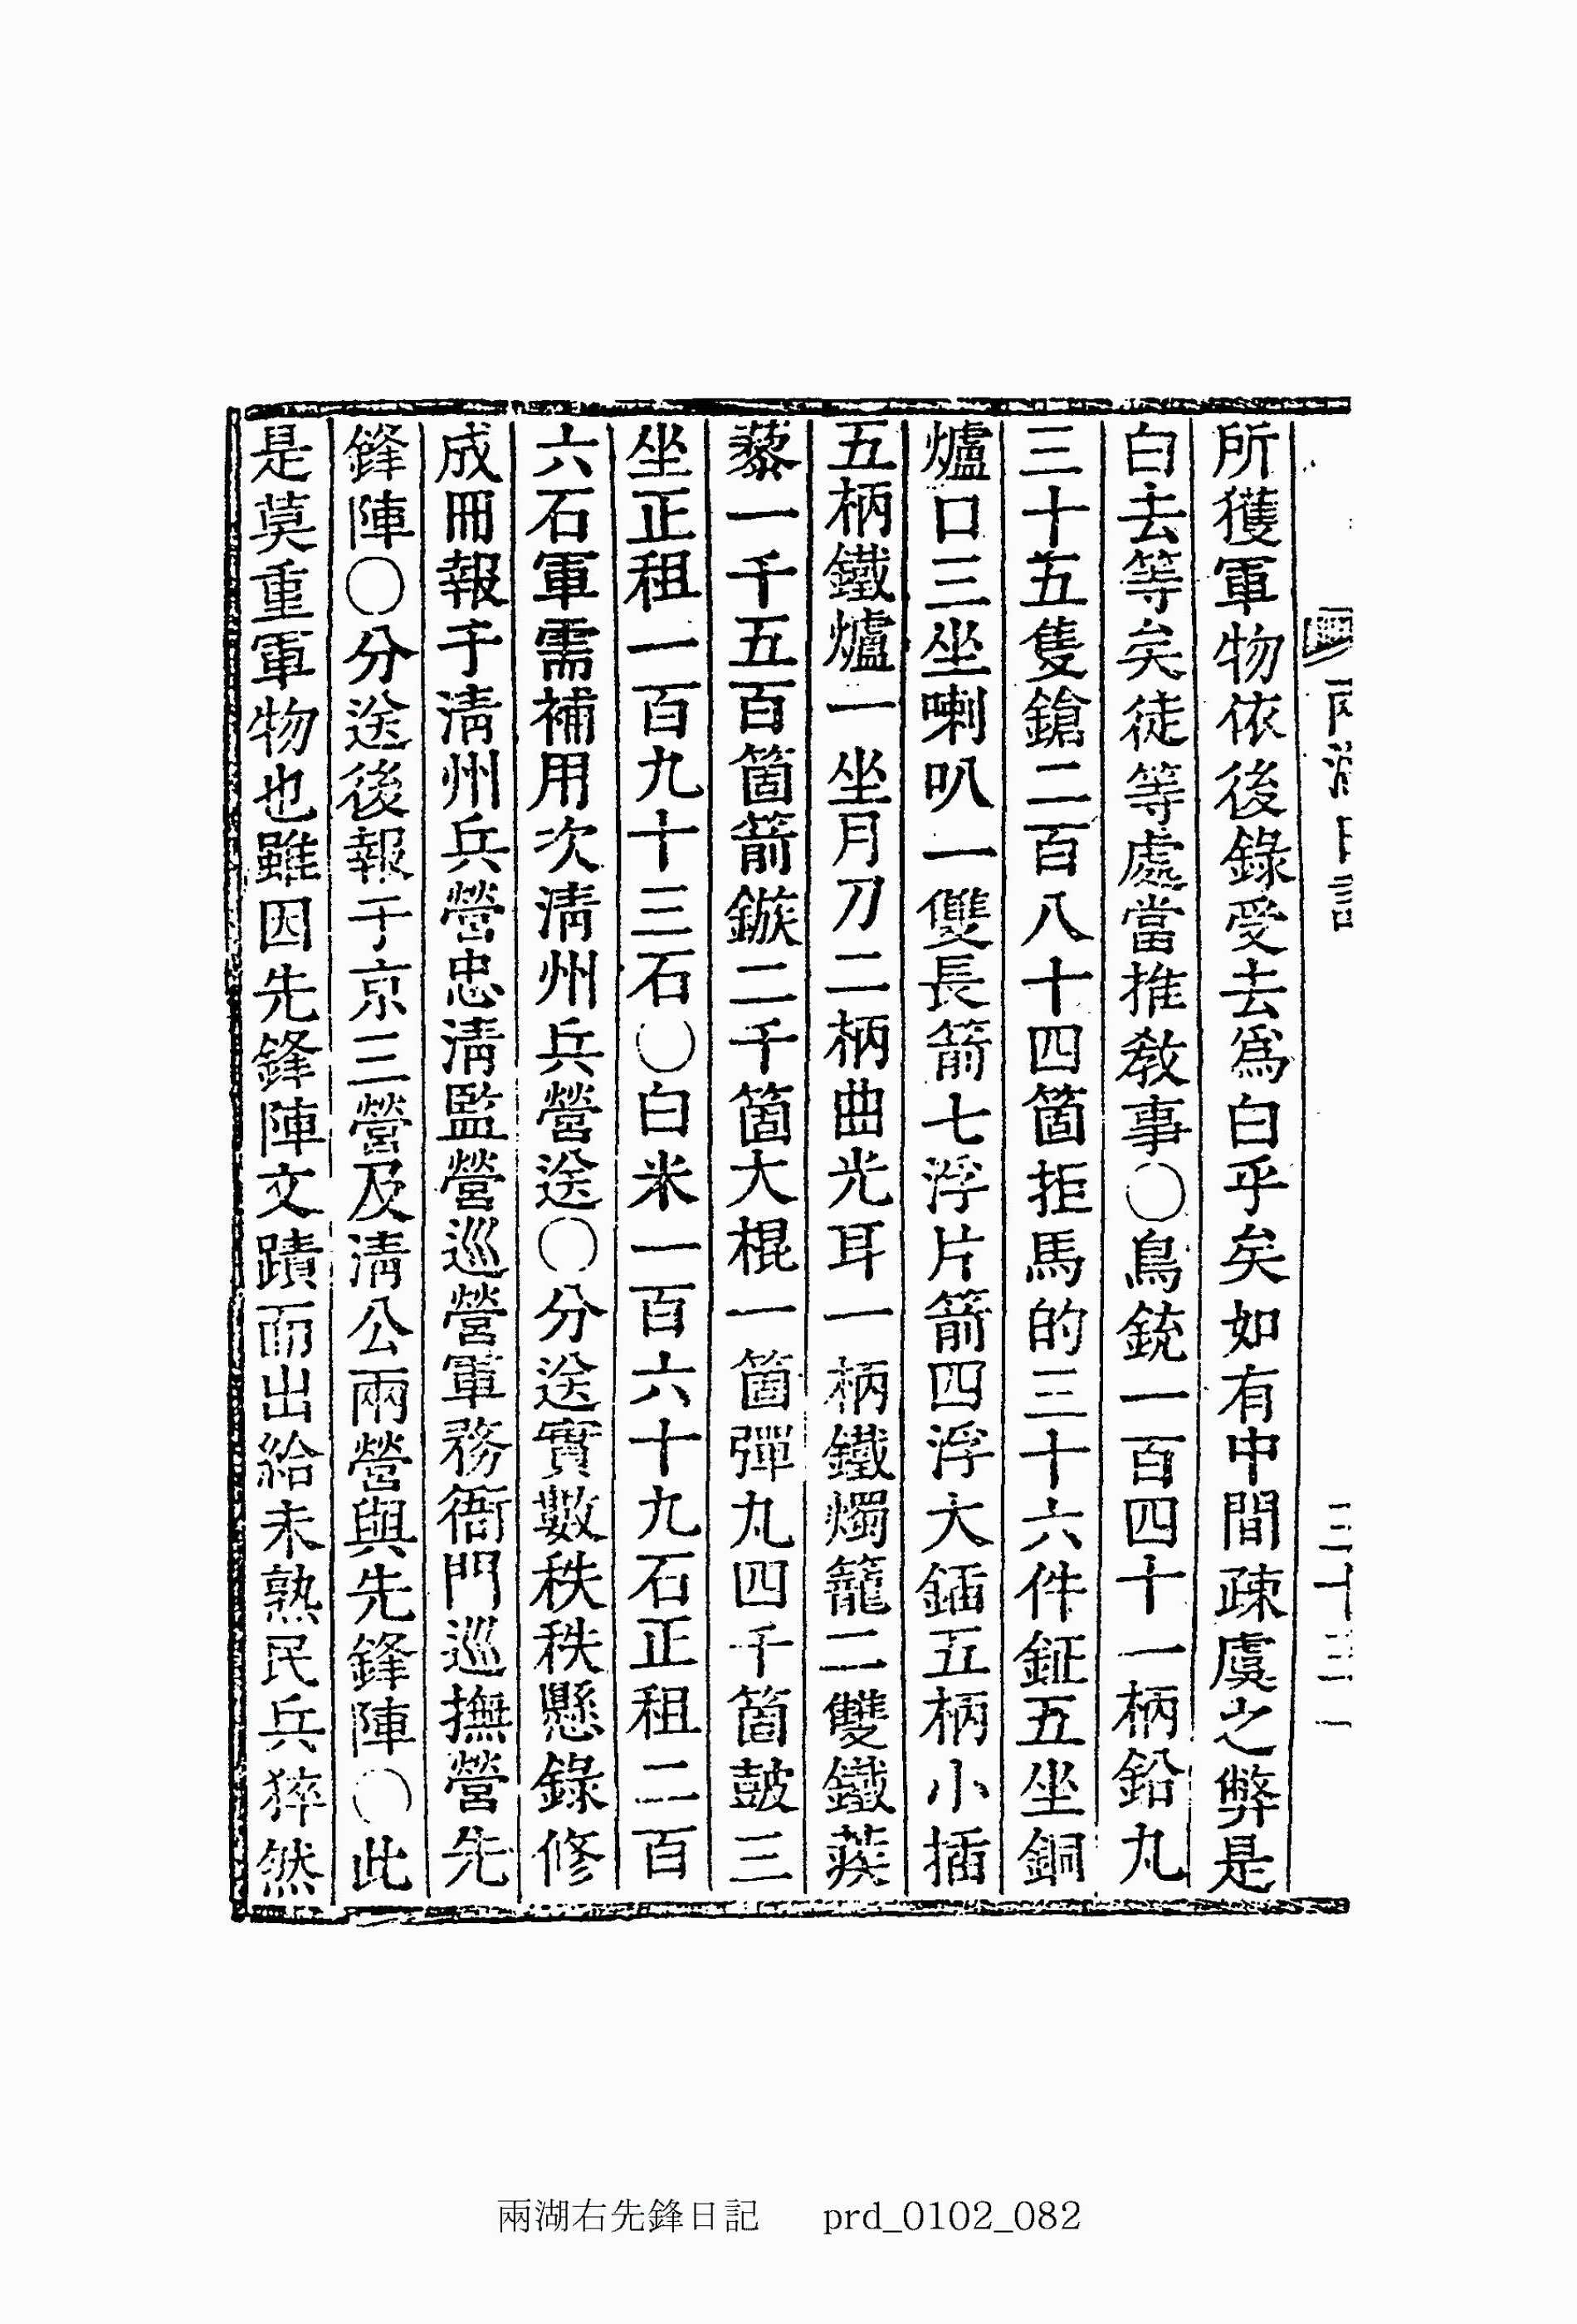 所獲軍物依後錄受去爲白乎矣如有中間疎虞之弊是
白去等矣徒等處當推敎事○鳥銃一百四十一柄鉛丸
三十五隻鎗二百八十四箇拒馬的三十六件鉦五坐銅
爐口三坐喇叭一雙長箭七浮片箭四浮大鍤五柄小插
五柄鐵爐一坐月刀二柄曲光耳一柄鐵燭籠二雙鐵蒺
藜一千五百箇箭鏃二千箇大棍一箇彈丸四千箇鼓三
坐正租一百九十三石○白米一百六十九石正租二百
六石軍需補用次淸州兵營送○分送實數秩秩懸錄修
成冊報于淸州兵營忠淸監營巡營軍務衙門巡撫營先
鋒陣○分送後報于京三營及淸公兩營與先鋒陣○此
是莫重軍物也雖因先鋒陣文蹟而出給未熟民兵猝然
兩湖右先鋒日記 prd_0102_082